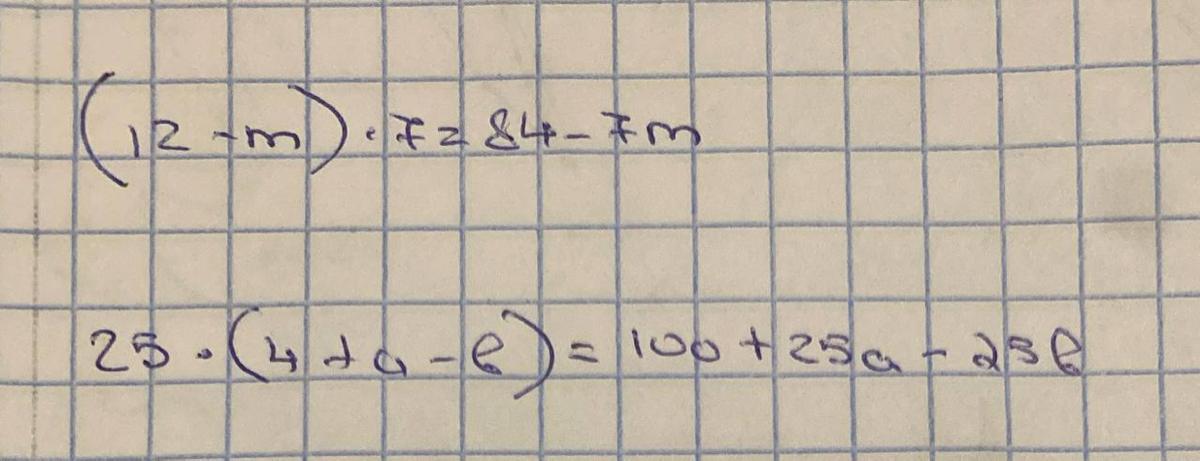 (12 - m) · 7 = 84 - 7m
25 · (4 + a - b) = 100 + 25a - 25b